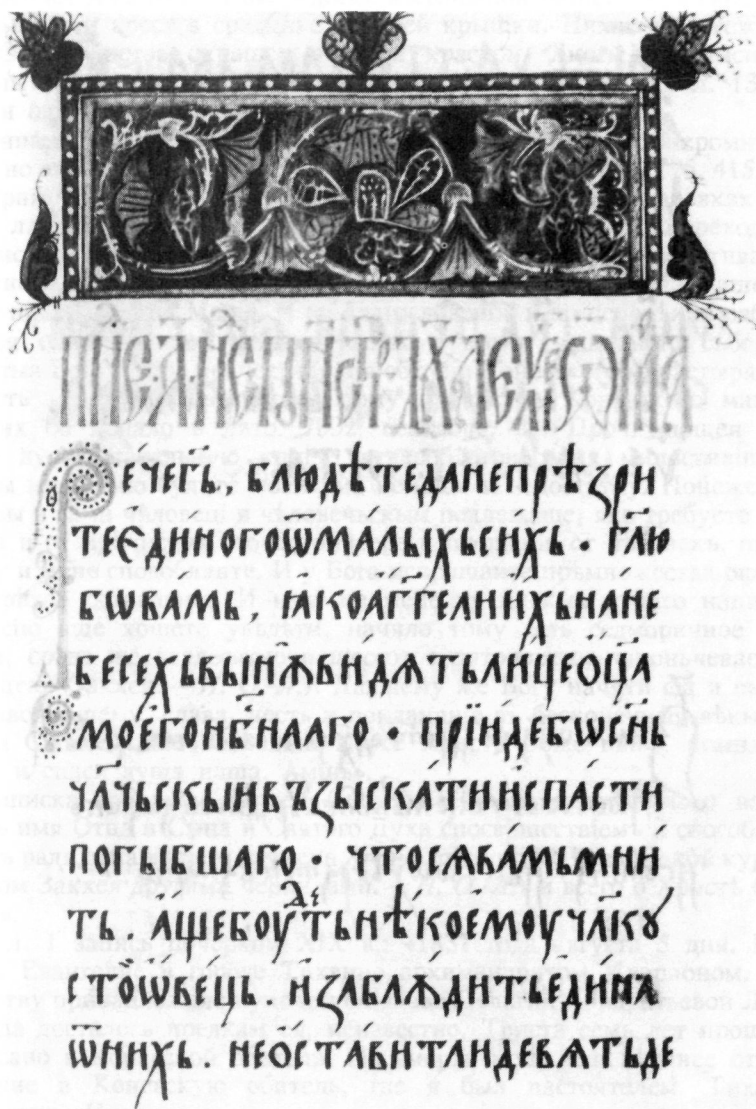 Рече гь, блюдѣте да не прѣзри
те единого ѿ малыхь сихь · глю
бѡ вамь, ꙗко аггели ихь на не
бесехь вынѫ видѧть лице оца
моего нбнааго · прїиде бѡ снь
члчьскыи възыскати и спасти
погыбшаго · что сѧ вамь мни
ть. аще боудеть нѣкоемоу члкꙋ
сто ѡвець и заблѫдить едина
ѿ нихь. не ѡставить ли девѧтьде